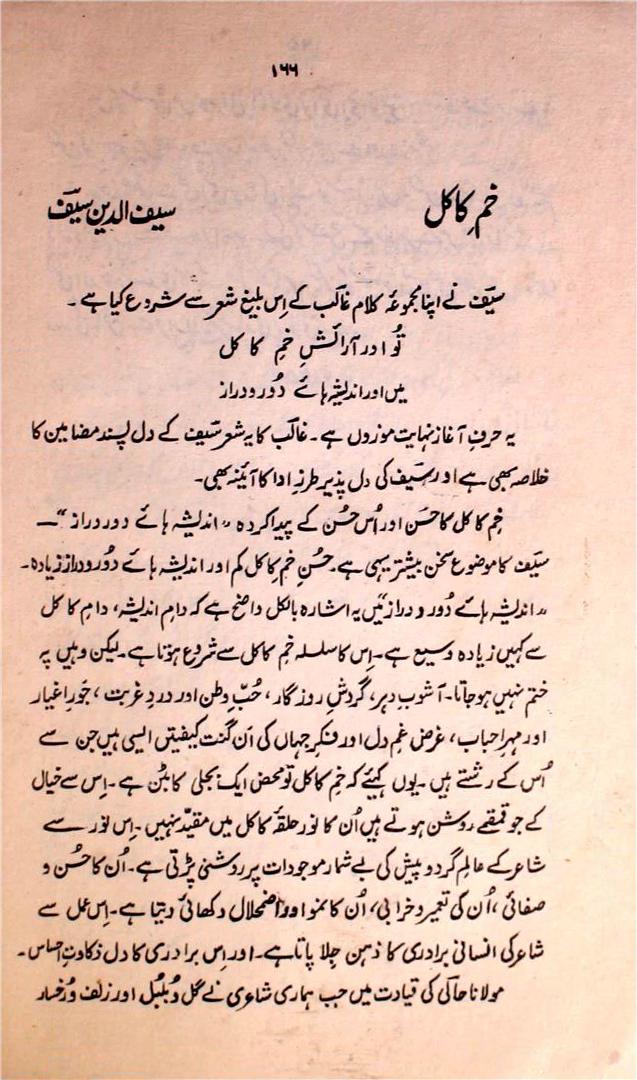 ۱۶۶
خمِ کاکل سیف الدین سیفؔ
سیفؔ نے اپنا مجموعۂ کلام غالبؔ کے اِس بلیغ شعر سے شروع کیا ہے۔
تُو اور آرائشِ خمِ کا کل
میں اور اندیشہ ہائے دُور و دراز
یہ حرفِ آغاز نہایت موزوں ہے۔ غالبؔ کا یہ شعر سیفؔ کے دل پسند مضامین کا
خلاصہ بھی ہے اور سیفؔ کی دل پذیر طرزِ ادا کا آئینہ بھی۔
خمِ کا کل کا حسَن اور اُس حُسن کے پیدا کردہ "اندیشہ ہائے دور دراز"—
سیفؔ کا موضوعِ سخن بیشتر یہی ہے۔ حُسنِ خمِ کاکل کم اور اندیشہ ہائے دُور و دراز زیادہ۔
"اندیشہ ہائے دُور و دراز" میں یہ اشارہ بالکل واضح ہے کہ دامِ اندیشہ، دامِ کا کل
سے کہیں زیادہ وسیع ہے۔ اِس کا سلسلہ خمِ کاکل سے شروع ہوتا ہے۔ لیکن وہیں پہ
ختم نہیں ہو جاتا۔ آشوبِ دہر، گردشِ روزگار، حُبِّ وطن اور دردِ غربت، جَورِ اغیار
اور مہرِ احباب، غرض غمِ دل اور فکرِ جہاں کی اَن گنت کیفیتیں ایسی ہیں جن سے
اُس کے رشتے ہیں۔ یوں کہیئے کہ خمِ کاکل تو محض ایک بجلی کا بٹن ہے۔ اِس سے خیال
کے جو قمقمے روشن ہوتے ہیں اُن کا نور حلقۂ کاکل میں مقیّد نہیں۔ اِس نوُر سے
شاعر کے عالمِ گرد و پیش کی بے شمار موجودات پر روشنی پڑتی ہے۔ اُن کا حُسن و
صفائی، اُن کی تعمیر و خرابی، اُن کا نمو اور اضمحلال دکھائی دیتا ہے۔ اِس عمل سے
شاعر کی انسانی برادری کا ذہن جِلا پاتا ہے۔ اور اِس برادری کا دل ذکاوتِ احساس۔
مولانا حالیؔ کی قیادت میں جب ہماری شاعری نے گل و بُلبُل اور زلف و رُخسار